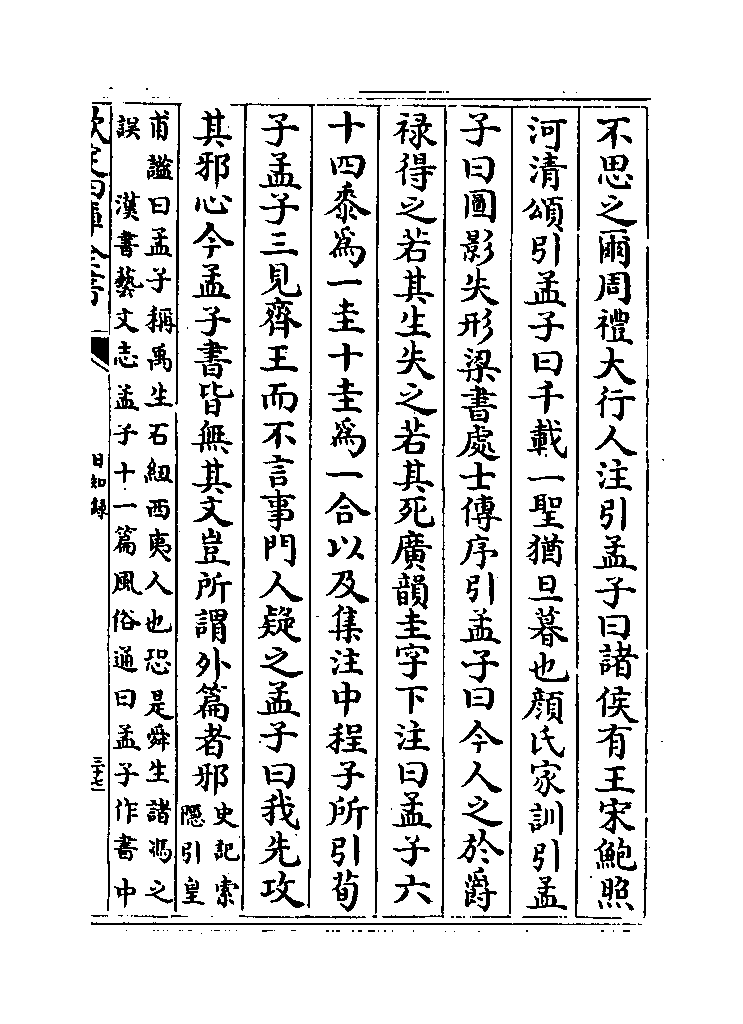 不思之爾周禮大行人注引孟子曰諸侯有王宋鮑照
河清頌引孟子曰千載一聖猶旦暮也顔氏家訓引孟
子曰圖影失形梁書處士傳序引孟子曰今人之於爵
禄得之若其生失之若其死廣韻圭字下注曰孟子六
十四黍爲一圭十圭爲一合以及集注中程子所引荀
子孟子三見齊王而不言事門人疑之孟子曰我先攻
其邪心今孟子書皆無其文豈所謂外篇者邪
史記索
隠引皇
甫謐曰孟子稱禹生石紐西夷人也恐是舜生諸馮之
誤　漢書藝文志孟子十一篇風俗通曰孟子作書中
欽定四庫全書
日知録